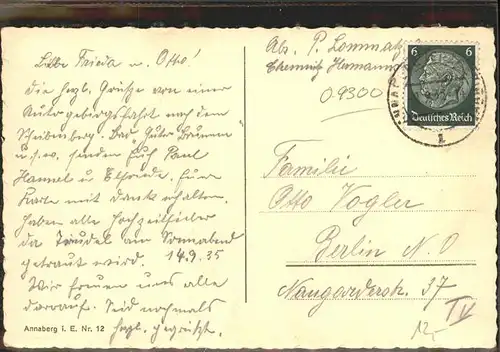 Liebe Frieda u. Otto!
Die hzgl. Grüße von einer
Autogebirgsfahrt nach dem
Scheibenberg. Bad "Guter Brunnen"
u.s.w. senden Euch Paul
Hannel u. Elfriede. Eure
Karte mit Dank erhalten.
haben alle Hochzeitsfieber
da Traudel am Sonnabend
getraut wird. 14.9.35
Wir freuen uns alle
darauf. Seid nochmals
hzgl. gegrüßt.
Annaberg i. E. Nr. 12
Abs. P. Lommatz
Chemnitz Hermann
09300
6 6
Deutsches Reich
1
Familie
Otto Vogler
Berlin N.O
Naugarderstr. 37
IV
12,-